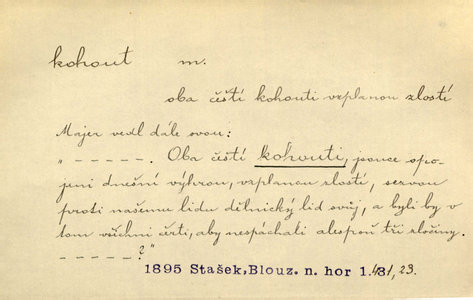 kohout m.
oba čeští kohouti vzplanou zlostí
Majer vedl dále svou:
" - - - - -. Oba čeští kohouti, pouze spo-
jeni dnešní výhrou, vzplanou zlostí, servou
proti našemu lidu dělnický lid svůj, a byli by v
tom všichni čerti, aby nespáchali alespoň tři zločiny.
- - - - -?"
1895 Stašek, Blouz. n. hor 1. 431, 23.